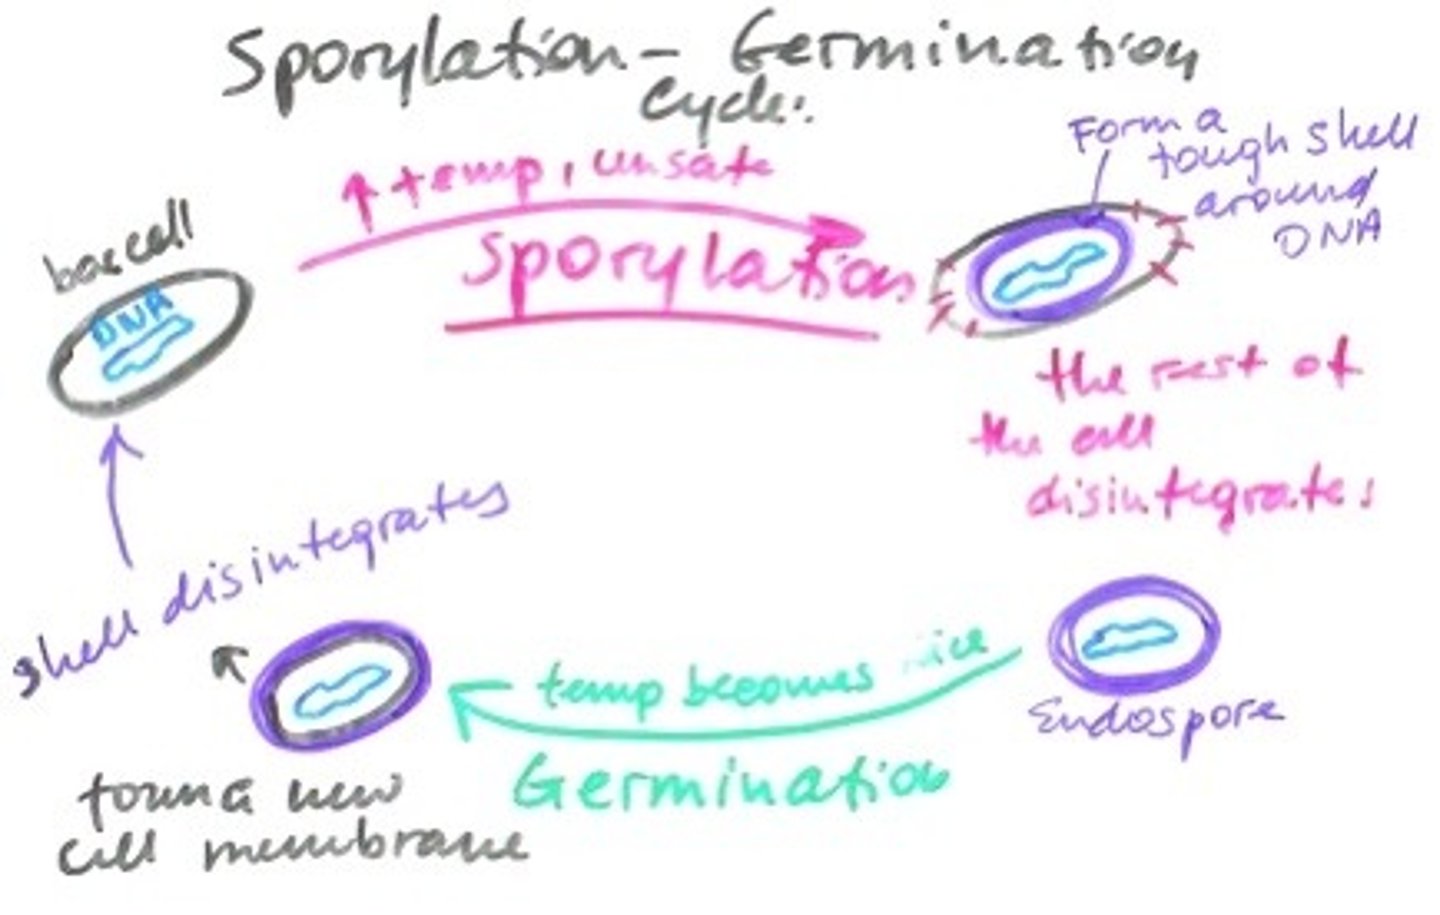 Sporylation - Germination
Cycle:
↑ temp, unsafe
Sporylation
Form a
tough shell
around
DNA
bac cell
DNA
the rest of
the cell
disintegrates
shell disintegrates
temp becomes nice
Germination
Endospore
form a new
cell membrane